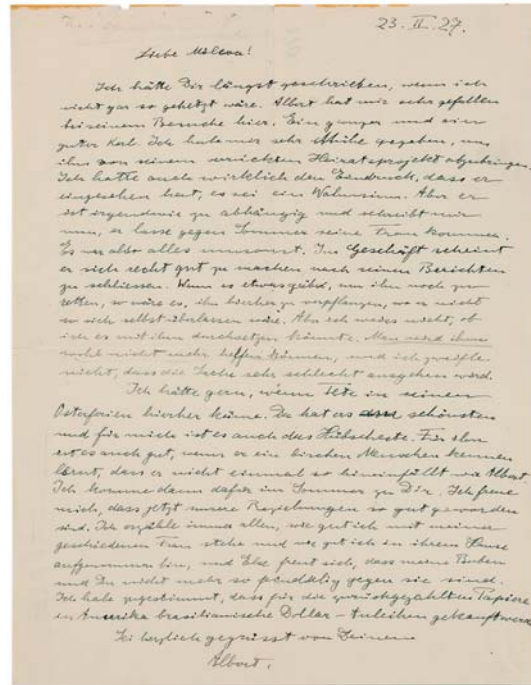 23. II. 27.
Liebe Mileva!
Ich hätte Dir längst geschrieben, wenn ich
nicht gar so gehetzt wäre. Albert hat mir sehr gefallen
bei seinem Besuche hier. Ein ganzer und ein
guter Kerl. Ich habe mir sehr Mühe gegeben, um
ihn von seinem verrückten Heiratsprojekt abzubringen.
Ich hatte auch wirklich den Eindruck, dass er
eingesehen hat, es sei ein Wahnsinn. Aber er
ist irgendwie zu abhängig und schreibt mir
nun, er lasse gegen Sommer seine Frau kommen.
Es war also alles umsonst. Im Geschäft scheint
er sich recht gut zu machen nach seinen Berichten
zu schliessen. Wenn es etwas gäbe, um ihn noch zu
retten, so wäre es, ihn hierher zu verpflanzen, wo er nicht
so sich selbst überlassen wäre. Aber ich weiss nicht, ob
ich es mit ihm durchsetzen könnte. Man wird ihm
wohl nicht mehr helfen können, und ich zweifle
nicht, dass die Sache sehr schlecht ausgehen wird.
Ich hätte gern, wenn Tete in seinen
Osterferien hierher käme. Da hat er's am schönsten
und für mich ist es auch das Hübscheste. Für ihn
ist es auch gut, wenn er ein bischen Menschen kennen
lernt, dass er nicht einmal so hineinfällt wie Albert.
Ich komme dann dafür im Sommer zu Dir. Ich freue
mich, dass jetzt unsere Beziehungen so gut geworden
sind. Ich erzähle immer allen, wie gut ich mit meiner
geschiedenen Frau stehe und wie gut ich in ihrem Hause
aufgenommen bin, und Else freut sich, dass meine Buben
und Du nicht mehr so feindselig gegen sie sind.
Ich habe zugestimmt, dass für die zurückgezahlten Papiere
in Amerika brasilianische Dollar-Anleihen gekauft
Sei herzlich gegrüsst von Deinem
Albert.